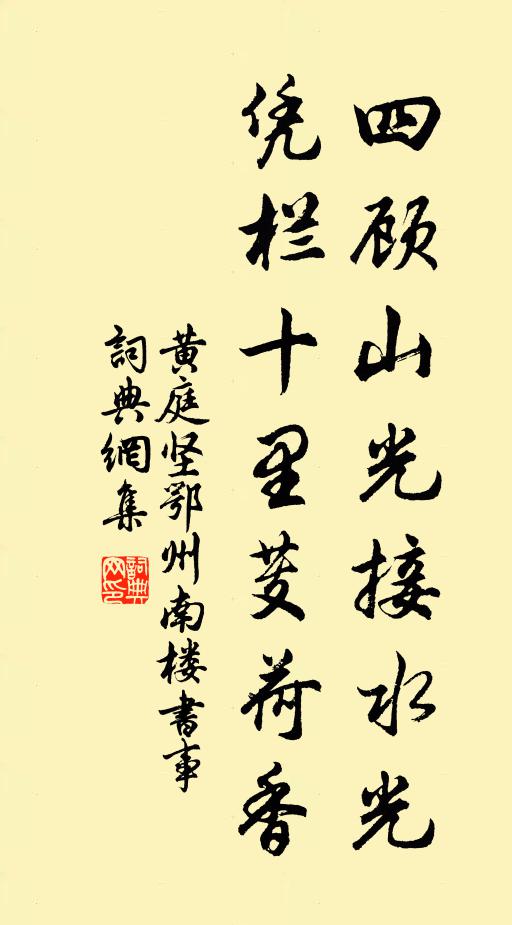 四顾山光接水光
凭栏十里芰荷香
黄庭坚鄂州南楼书事
詞典網集
詞典
网印